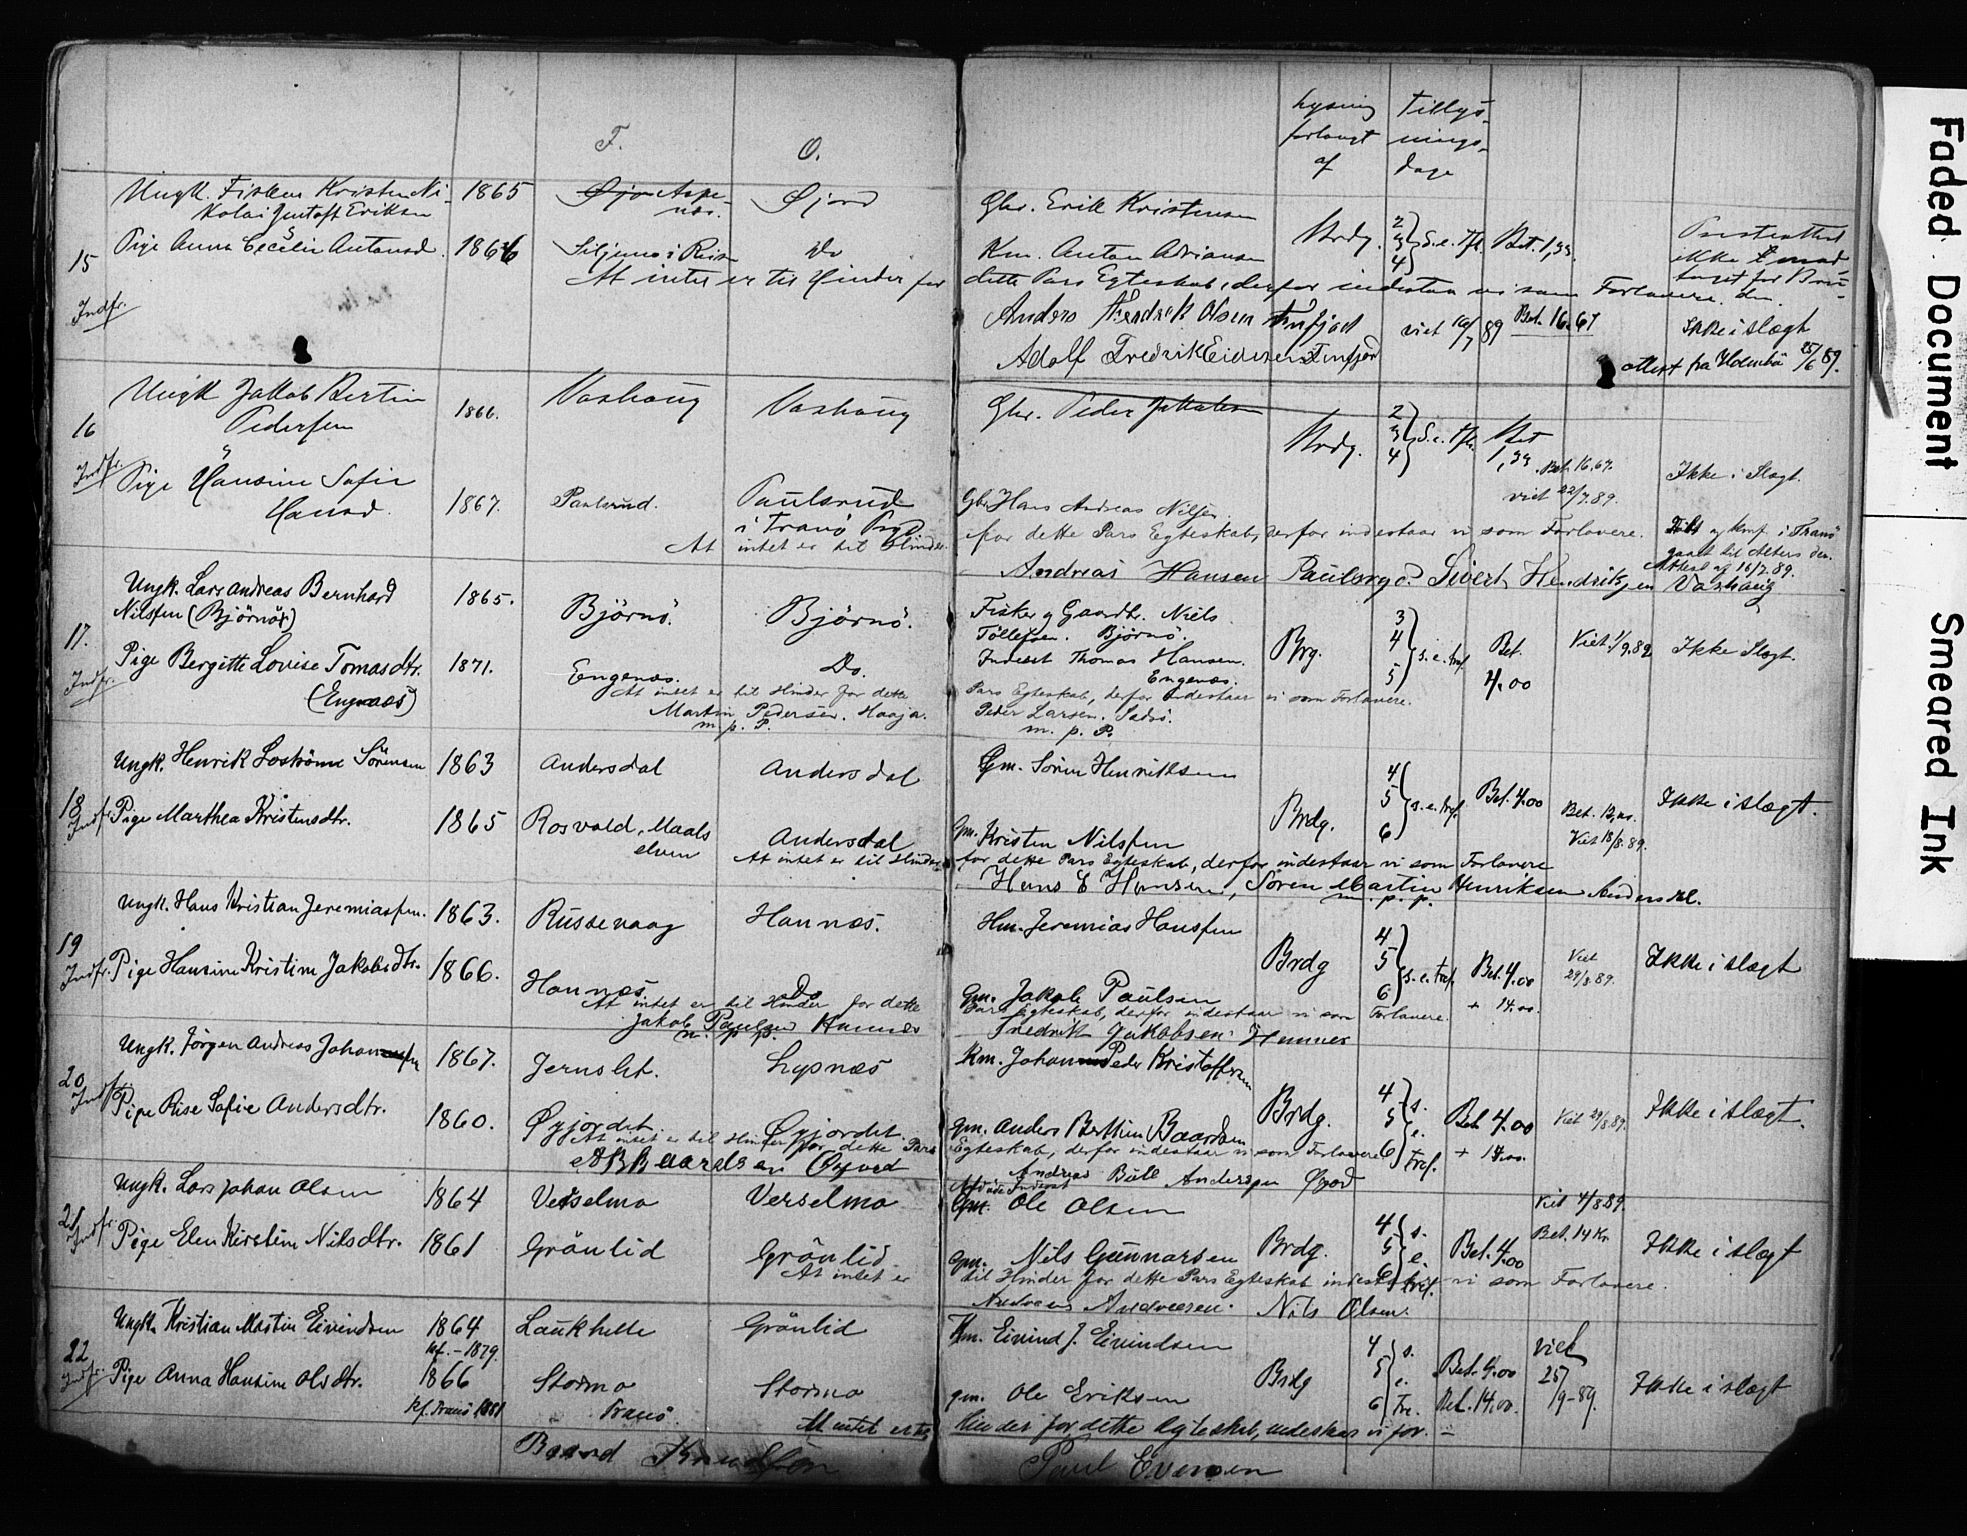 F.
O.
Lysning forlangt af
Tillysningsdage
15
Indfr.
Ungk. Fisker Kristen Ni-
kolai Gustaft Eriksen
1865
Øjord
Gbr. Erik Kristensen
Pige Anna Cecilie Antonsd.
1866
Do
Km. Anton Adriansen
Brdg.
2 3 4
S. e. Tfl.
Bet. 1,33.
At intet er til Hinder for
dette Pars Egteskab, derfor indestaa vi som Forlovere.
Anders Fredrik Olsen Finfjord
viet 16/7 89
Bet. 16.67
Ikke i slægt
Adolf Fredrik Eidissen Finfjord
attest fra Holmbö 25/6 89.
16
Indfr.
Ungk Jakob Bertin
Pedersen
1866.
Vashaug
Vashaug
Gbr. Peder Jakobsen
Brdg.
2 3 4
S. e. Tfr.
Bet
1,33.
Bet. 16.67.
viet 22/7.89.
Ikke i Slægt.
Pige Hansine Sofie
Hansd.
1867.
Paulsrud.
Paulsrud
i Tranö Prgd
Gbr Hans Andreas Nilsen.
At intet er til Hinder
for dette Pars Egteskab, derfor indestaar vi som Forlovere.
Födt og Konf. i Tranö
gaaet til Alters den
Attest af 16/7.89.
Andreas Hansen Paulsryd. Sivert Hendriksen Vashaug
17.
Indfr.
Ungk. Lars Andreas Bernhard
Nilssen (Björnö)
1865.
Björnö.
Björnö.
Fisker og Gaardbr. Niels
Töllefsen. Björnö.
Brg.
3 4 5
s. e. tref.
Bet.
4.00
Viet 1/9.89
Ikke Slægt.
Pige Bergitte Lovise Tomasdtr.
(Engenæs)
1871.
Engenæs.
Do.
Inderst Thomas Hansen.
Engenæs.
At intet er til Hinder for dette
Pars Egteskab, derfor indestaar vi som Forlovere.
Martin Pedersen. Haaja.
m. p. P.
Peder Larsen. Sadsö.
m. p. P.
18
Indfr.
Ungk. Henrik Loströmr Sörensen
1863
Andersdal
Andersdal
Gm. Sören Henriksen
Brdg.
4 5 6
s. e. tref.
Bet. 4.00
Viet 18/8.89.
Ikke i slægt.
Pige Marthea Kristensdtr.
1865
Rosvold, Maals
elven
Andersdal
Gm. Kristen Nilssen
At intet er til Hinder
for dette Pars Egteskab, derfor indestaar vi som Forlovere
Hans E Hansen, Sören Martin Henriksen Andersdal.
m. p. p.
19
Indfr.
Ungk. Hans Kristian Jeremiassen.
1863.
Russevaag
Hannæs.
Hm. Jeremias Hanssen
Brdg
4 5 6
s. e. tref.
Bet. 4.00
+ 14.00.
Viet
29/8.89.
Ikke i slægt
Pige Hansine Kristine Jakobsdtr.
1866.
Hannæs
Do
Gm. Jakob Paulsen
At intet er til Hinder for dette
Pars Egteskab, derfor indestaar vi som Forlovere.
Jakob Paulsen Hannes
m. p. p.
Fredrik Jakobsen Hennes
20
Indfr.
Ungk. Jörgen Andreas Johansen
1867.
Jernslet.
Lysnæs
Km. Johan Peder Kristoffersen
Brdg.
4 5 6
s. e. tref.
Bet 4.00
+ 14.00.
Viet 29/8.89.
Ikke i slægt.
Pige Rise Sofie Andersdtr.
1860.
Øyjordet.
Øyjordet.
Gm. Anders Berthin Baardsen
At intet er til Hinder for dette Pars
Egteskab, derfor indestaar vi som Forlovere
A B Baardsen Øyjord
Andreas Bull Andersen Øjord
21
Indfr
Ungk. Lars Johan Olsen
1864
Verselmo
Verselmo
Gm. Ole Olsen
Brdg.
4 5 6
s. e. tref.
Bet. 4.00
Viet 4/8.89.
Bet. 14 Kr
Ikke i slægt
Pige Elen Kirstine Nilsdtr.
1861
Grönlid
Grönlid.
Gm. Nils Gunnarsen
At intet er
til Hinder for dette Pars Egteskab indestaar vi som Forlovere.
Andreas Andreasen. Nils Olsen.
22
Indfr.
Ungk. Kristian Martin Eivindsen
1864
kf. - 1879.
Laukhelle
Grönlid
Km. Eivind J. Eivindsen
Brdg
4 5 6
s. e. Tre.
Bet. 4.00
Bet. 14.00.
viet
25/9-89.
Ikke i slægt
Pige Anna Hansine Olsdtr.
1866
kf. Tranö 1881
Stormo
Tranö.
Stormo
gm. Ole Eriksen
At intet er til
hinder for dette Egteskab, indestaar vi for. -
Baard Knudsen
Paul Evensen
Faded Document
Smeared Ink